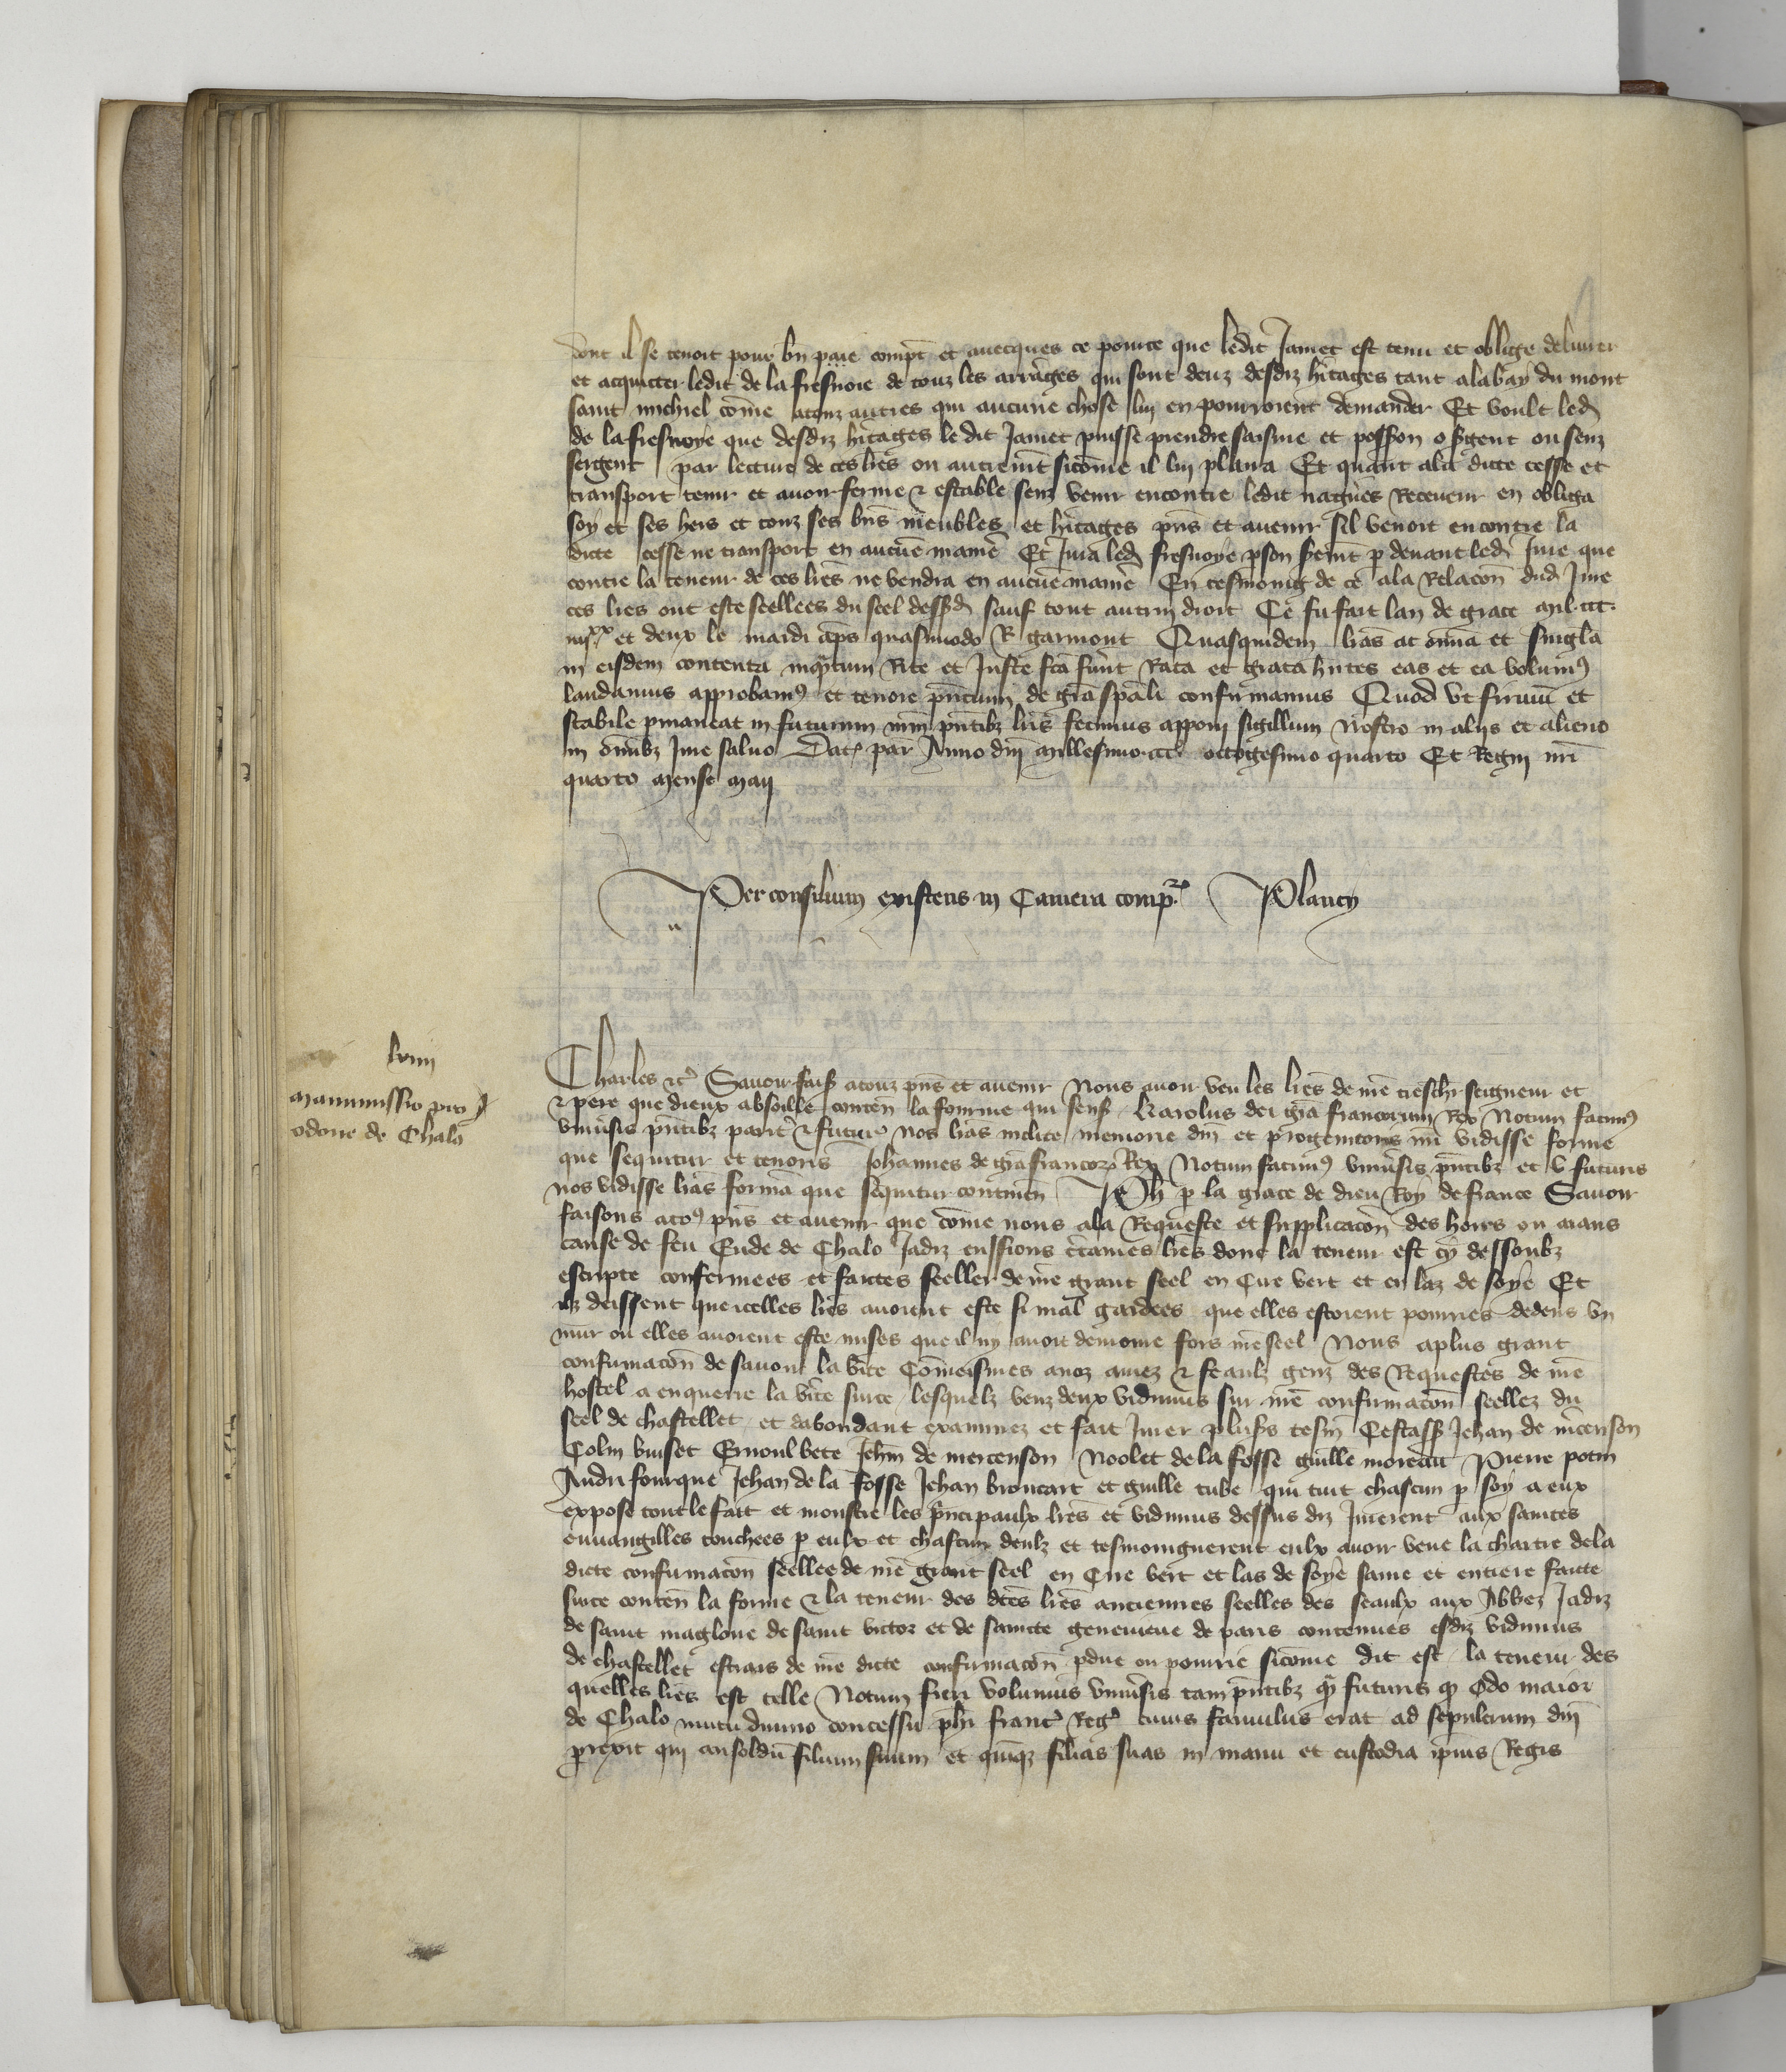 dont il se tenoit pour bn paie compt et avecques ce pource que ledit Jamet est tenu et oblige delivrer
et acquitter ledit de la fresnoie de touz les arrages qui sont deuz desdiz hitages tant alabay du mont
saint michiel come atouz autres qui aucune chose luy en pourroient demander Et voult led
de la fresnoye que desdiz hitages le dit Jamet puisse prendre saisine et posson o sgent ou senz
sergent par lecture de ces lres ou autremt sicome il lui plaira Et quant ala dicte cesse et
transport tenir et avoir ferme & estable senz venir encontre ledit nagues Receveur en obliga
soy et ses hers et touz ses bns meubles et hitages pns et avenir sil venoit encontre la
dicte cesse ne transport en aucue maniè Et Jura led fresnoye p son sermt p devant led Jure que
contre la teneur de ces lres ne vendra en aucue maniè En tesmoing de ce ala Relacon dud Jure
ces lres ont este seellees du seel dessusd sauf tout autrui droit Ce fu fait lan de grace mil ccc
iiijxx et deux le mardi aps quasimodo R garmont Quasquidem lras ac omia et singla
in eisdem contenta inqntum Rite et Juste fca funt Rata et grata hntes eas et ea volum9
laudamus approbam9 et tenore pncium de gra spali confirmamus Quod ut firmu et
stabile pmaneat in futurum nrm pntibz lris fecimus apponi sigillum Nostro in aliis et alieno
in omibz Jure salvo Dat par Anno dni millesimo ccc octogesimo quarto Et Regni nri
quarto mense maij
Per consilium existens in Camera comp Plancy
lviij
manumissio pro
odone de Chalo
Charles &c Savoir fais atouz pns et avenir Nous avoir veu les lres de nre treschr seigneur et
& pere que dieux absoille conten la forme qui sens Karolus dei gra francorum Rex Notum facim9
univsis pntibz parit & futur nos lras inclite memorie dni et progenitoris nri vidisse forme
que sequitur et tenoris Johannes de gra francor Rex Notum facim9 univsis pntibz et futuris
nos vidisse lras forma que sequitur continen Ph p la grace de dieu Roy de france Savoir
faisons ato9 pns et avenir que come nous ala Requeste et supplicacon des hoirs ou aians
cause de feu Eude de Chalo Jadiz eussions ctaines lres dont la teneur est cy dessoubz
escripte confermees et faites seeller de nre grant seel en Cire vert et en laz de soye Et
ilz deissent que icelles lres avoient este si mal gardees que elles estoient pourries dedens un
mur ou elles avoient este mises que il ny avoit demoure fors nre seel Nous aplus grant
confirmacon de savoir la vite Comeismes anoz amez & feaulz genz des Requestes de nre
hostel a enquerre la vite surce lesquelz veuz deux vidimus sur nre confirmacon seellez du
seel de chastellet et dabondant examinez et fait Jurer plusrs tesm Cestass Jehan de mcenson
Colin buiset Ernoul bete Jehn de mercenson Noolet de la fosse guille moreau Pierre potin
Andri fourque Jehan de la fosse Jehan broncart et guille tube qui tuit chascun p soy a eux
expose tout le fait et monstre les pncipaulx lres et vidimus dessus diz Jurerent aux saintes
euvangilles touchees p eulx et chascun deulz et tesmoignerent eulx avoir veue la chartre de la
dicte confirmacon seellee de nre grant seel en Cire vert et las de soye saine et entiere faicte
surce conten la forme & la teneur des dces lres anciennes seelles des seaulx aux Abbez Jadiz
de saint magloire de saint victor et de saincte genevieve de paris contenues esdiz vidimus
de chastellet estrais de nre dicte confirmacon pdue ou pourrie sicome dit est la teneur des
quelles lres est telle Notum fieri volumus univsis tam pntibz qm futuris q Odo maior
de Chalo nutu divino concessu phi franc Reg cuius famulus erat ad sepulcrum dni
prexit qui ansoldu filium suum et quiqz filias suas in manu et custodia ipius Regis